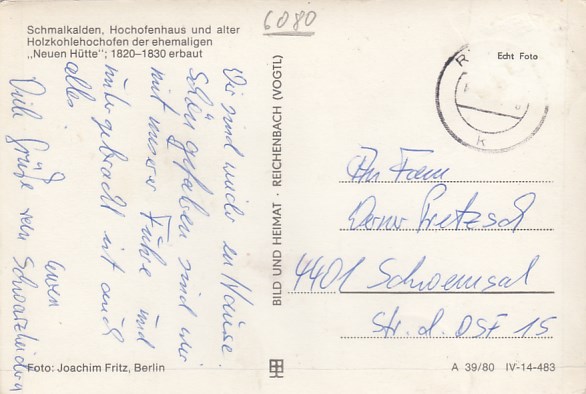 Schmalkalden, Hochofenhaus und alter
Holzkohlehochofen der ehemaligen
„Neuen Hütte“; 1820–1830 erbaut
6080
Echt Foto
Wir sind wieder zu Hause.
Schön gefahren sind wir
mit unserer Fuhre und
mitgebracht ist auch
alles.
Viele Grüße von
BILD UND HEIMAT · REICHENBACH (VOGTL)
An Fam
Werner Pretzsch
4401 Schwemsal
Str. d. DSF 15
Foto: Joachim Fritz, Berlin
A 39/80 IV-14-483